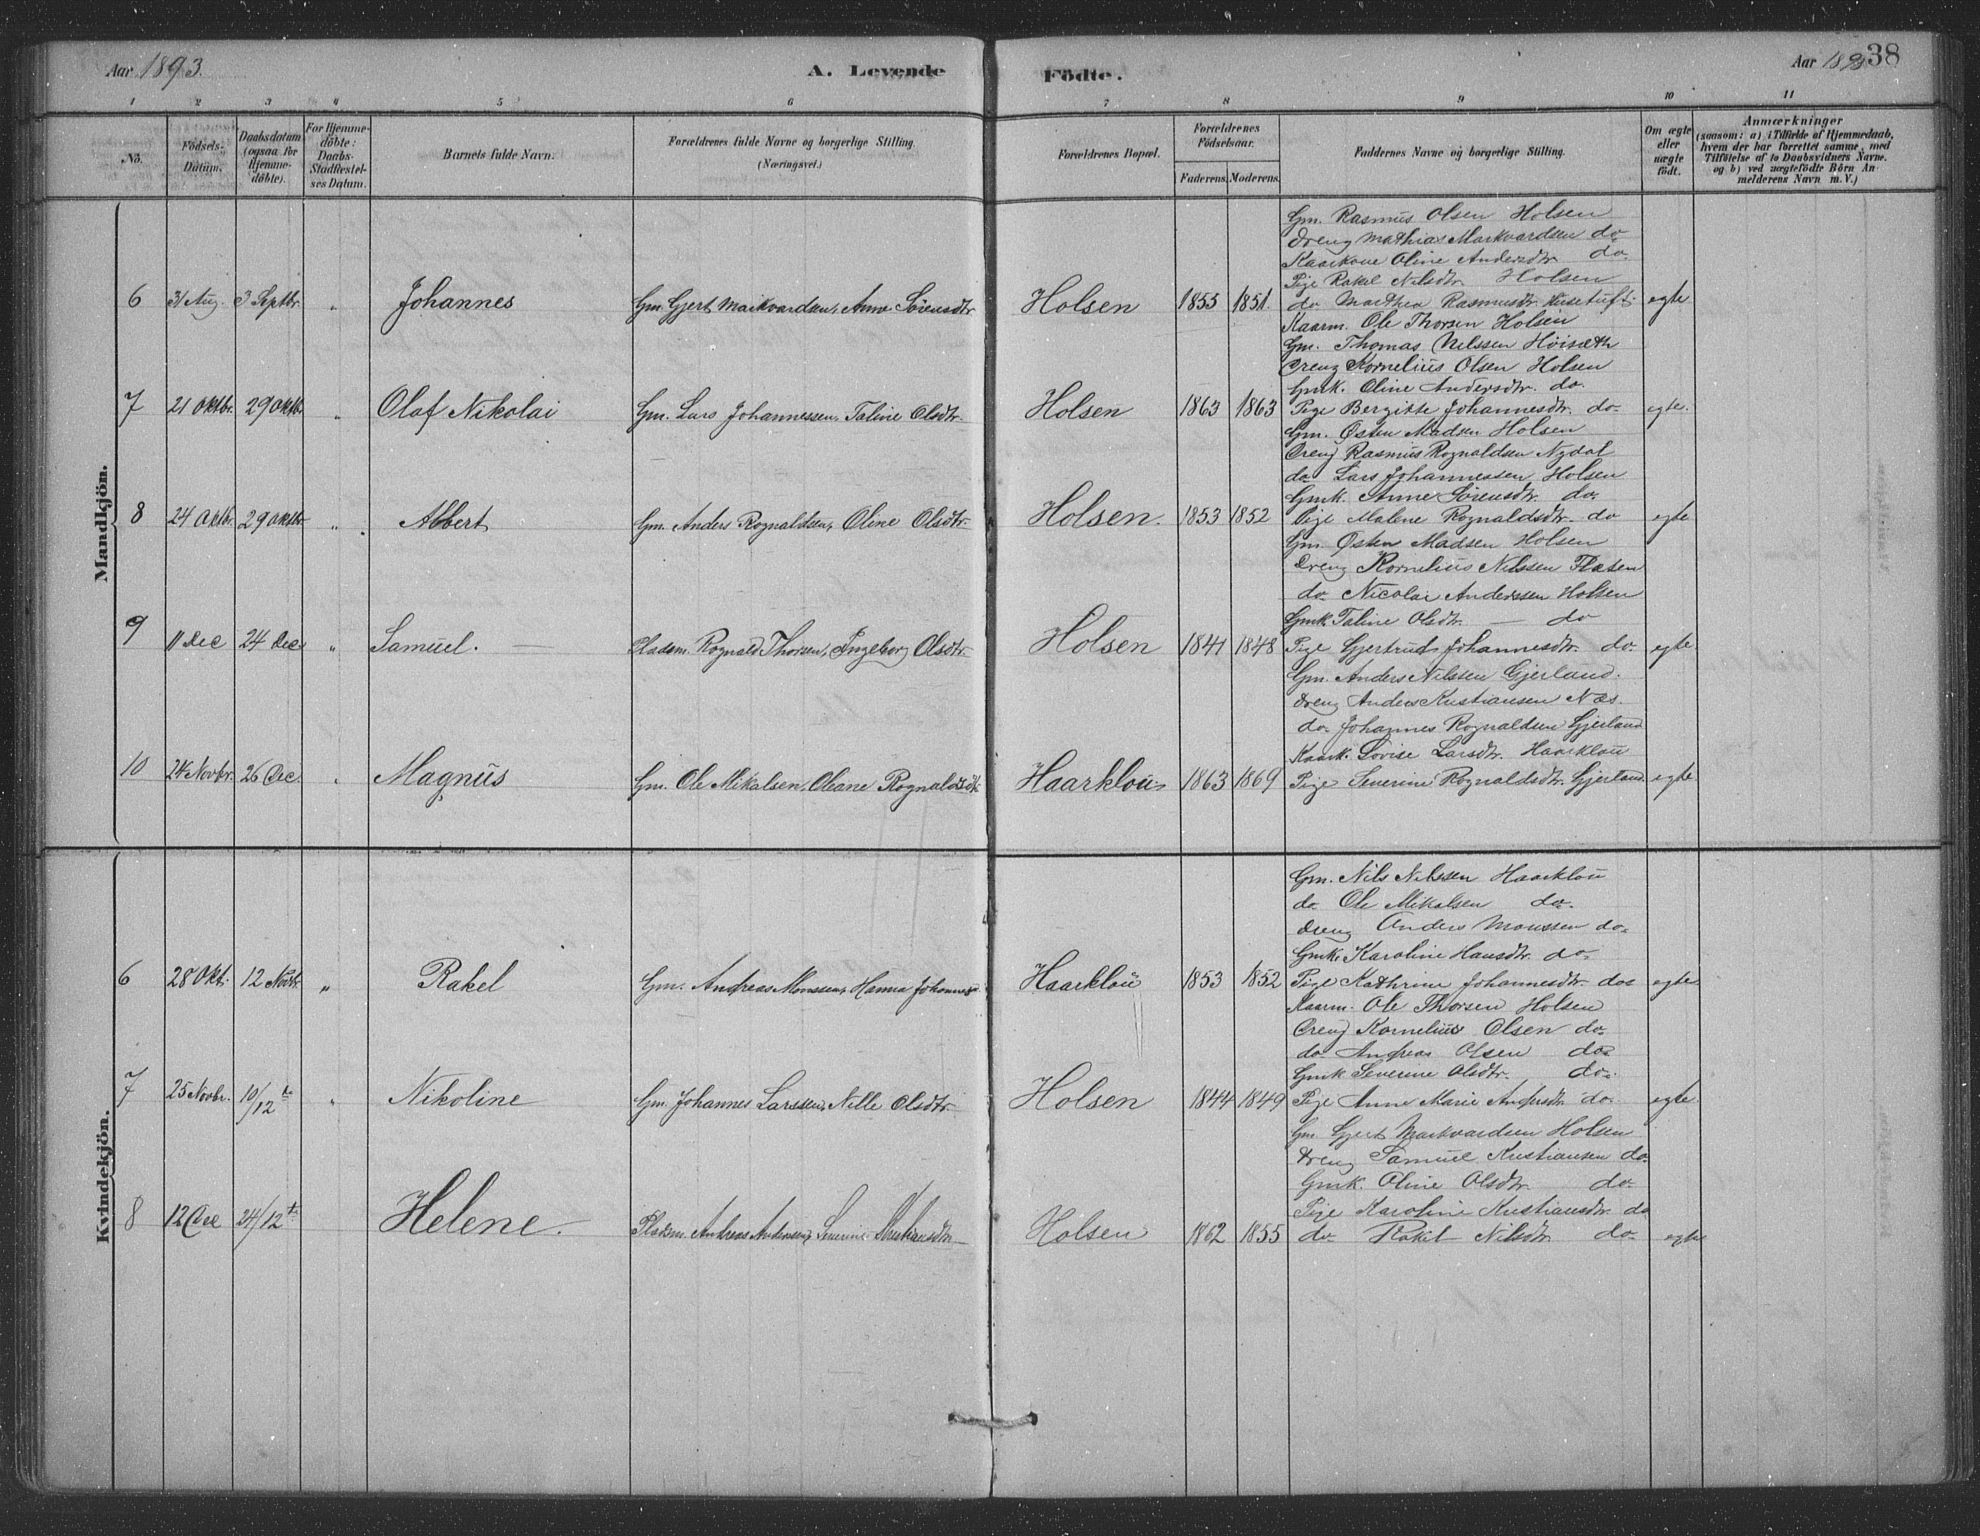 Aar 1893. A. Levende Födte. Aar 1893 38
1 2 3 4 5 6 7 8 9 10 11
No. Födsels-Datum. Daabsdatum (ogsaa for Hjemmedöbte). For Hjemmedöbte: Daabs-Stadfæstelses Datum. Barnets fulde Navn. Forældrenes fulde Navne og borgerlige Stilling. (Næringsvei.) Forældrenes Bopæl. Forældrenes Födselsaar. Faderens. Moderens. Faddernes Navne og borgerlige Stilling. Om ægte eller uægte födt. Anmærkninger (saasom: a) i Tilfælde af Hjemmedaab, hvem der har forrettet samme, med Tilföielse af to Daabsvidners Navne. og b) ved uægtefödte Börn Anmelderens Navn m. V.)
Mandkjön.
Gm. Rasmus Olsen Holsen
Dreng Mathias Markvardsen do
Kaarkone Oline Andersdtr do.
Pige Rakel Nilsdtr. Holsen
6 31 Aug. 3 Septbr. " Johannes Gm. Gjert Markvardsen, Anne Sörensdtr Holsen 1855 1851. do Marthea Rasmusdtr. Husetuft. egte
Kaarm. Ole Thorsen Holsen
Gm. Thomas Nilssen Höisæth
Dreng Kornelius Olsen Holsen
Gmk. Oline Andersdtr. do.
7 21 Oktbr. 29 Oktb. " Olaf Nikolai Gm. Lars Johannessen, Taline Olsdtr. Holsen 1863 1863 Pige Bergitte Johannesdtr. do- egte.
Gm. Østen Madsen Holsen
Dreng Rasmus Rognaldsen Nydal
do Lars Johannessen Holsen
Gmk. Anne Sörensdtr. do.
8 24 Oktbr. 29 Oktbr " Albert Gm. Anders Rognaldsen, Oline Olsdtr. Holsen. 1853 1852 Pige Malene Rognaldsdtr. do egte
Gm. Østen Madsen Holsen
Dreng Kornelius Nilssen Flaten
do- Nicolai Anderssen Holsen
Gmk Taline Olsdtr. — do
9 11 Dec 24 Dec " Samuel. — Pladsm. Rognald Thorsen, Ingeborg Olsdtr. Holsen 1841 1848 Pige Gjertrud Johannesdtr. do. egte
Gm. Anders Nilssen Gjerland.
Dreng Anders Kristiansen Næs.
do- Johannes Rognaldsen Gjerland
Kaark. Lovise Larsdtr. Haarklou
10 24 Novbr. 26 Dec. " Magnus Gm. Ole Mikalsen, Oleane Rognaldsdtr Haarklou 1863 1869 Pige Severine Rognaldsdtr. Gjerland egte
Kvindekjön.
Gm. Nils Nilssen Haarklou
do- Ole Mikalsen do-
Dreng Anders Monssen do-
Gmk. Karoline Hansdtr. do-
6 28 Okt. 12 Novbr. " Rakel Gm. Andreas Monssen, Hanna Johannes Haarklou 1853 1852 Pige Kathrine Johannesdtr do egte
Kaarm. Ole Thorsen Holsen
Dreng Kornelius Olsen do-
do- Andreas Olsen do-
Gmk Severine Olsdtr. do-
7 25 Novbr. 10/12 " Nikoline Gm. Johannes Larssen, Nille Olsdtr. Holsen 1844 1849 Pige Anne Marie Andersdtr. do- egte
Gm. Gjert Markvardsen Holsen
Dreng Samuel Kristiansen do-
Gmk. Oline Olsdtr do-
Pige Karoline Kristiansdtr do
8 12 Dec 24/12 Helene. Pladsm. Andreas Andersen, Severine Kristiansdtr. Holsen 1862 1855 do- Rakel Nilsdtr. do- egte